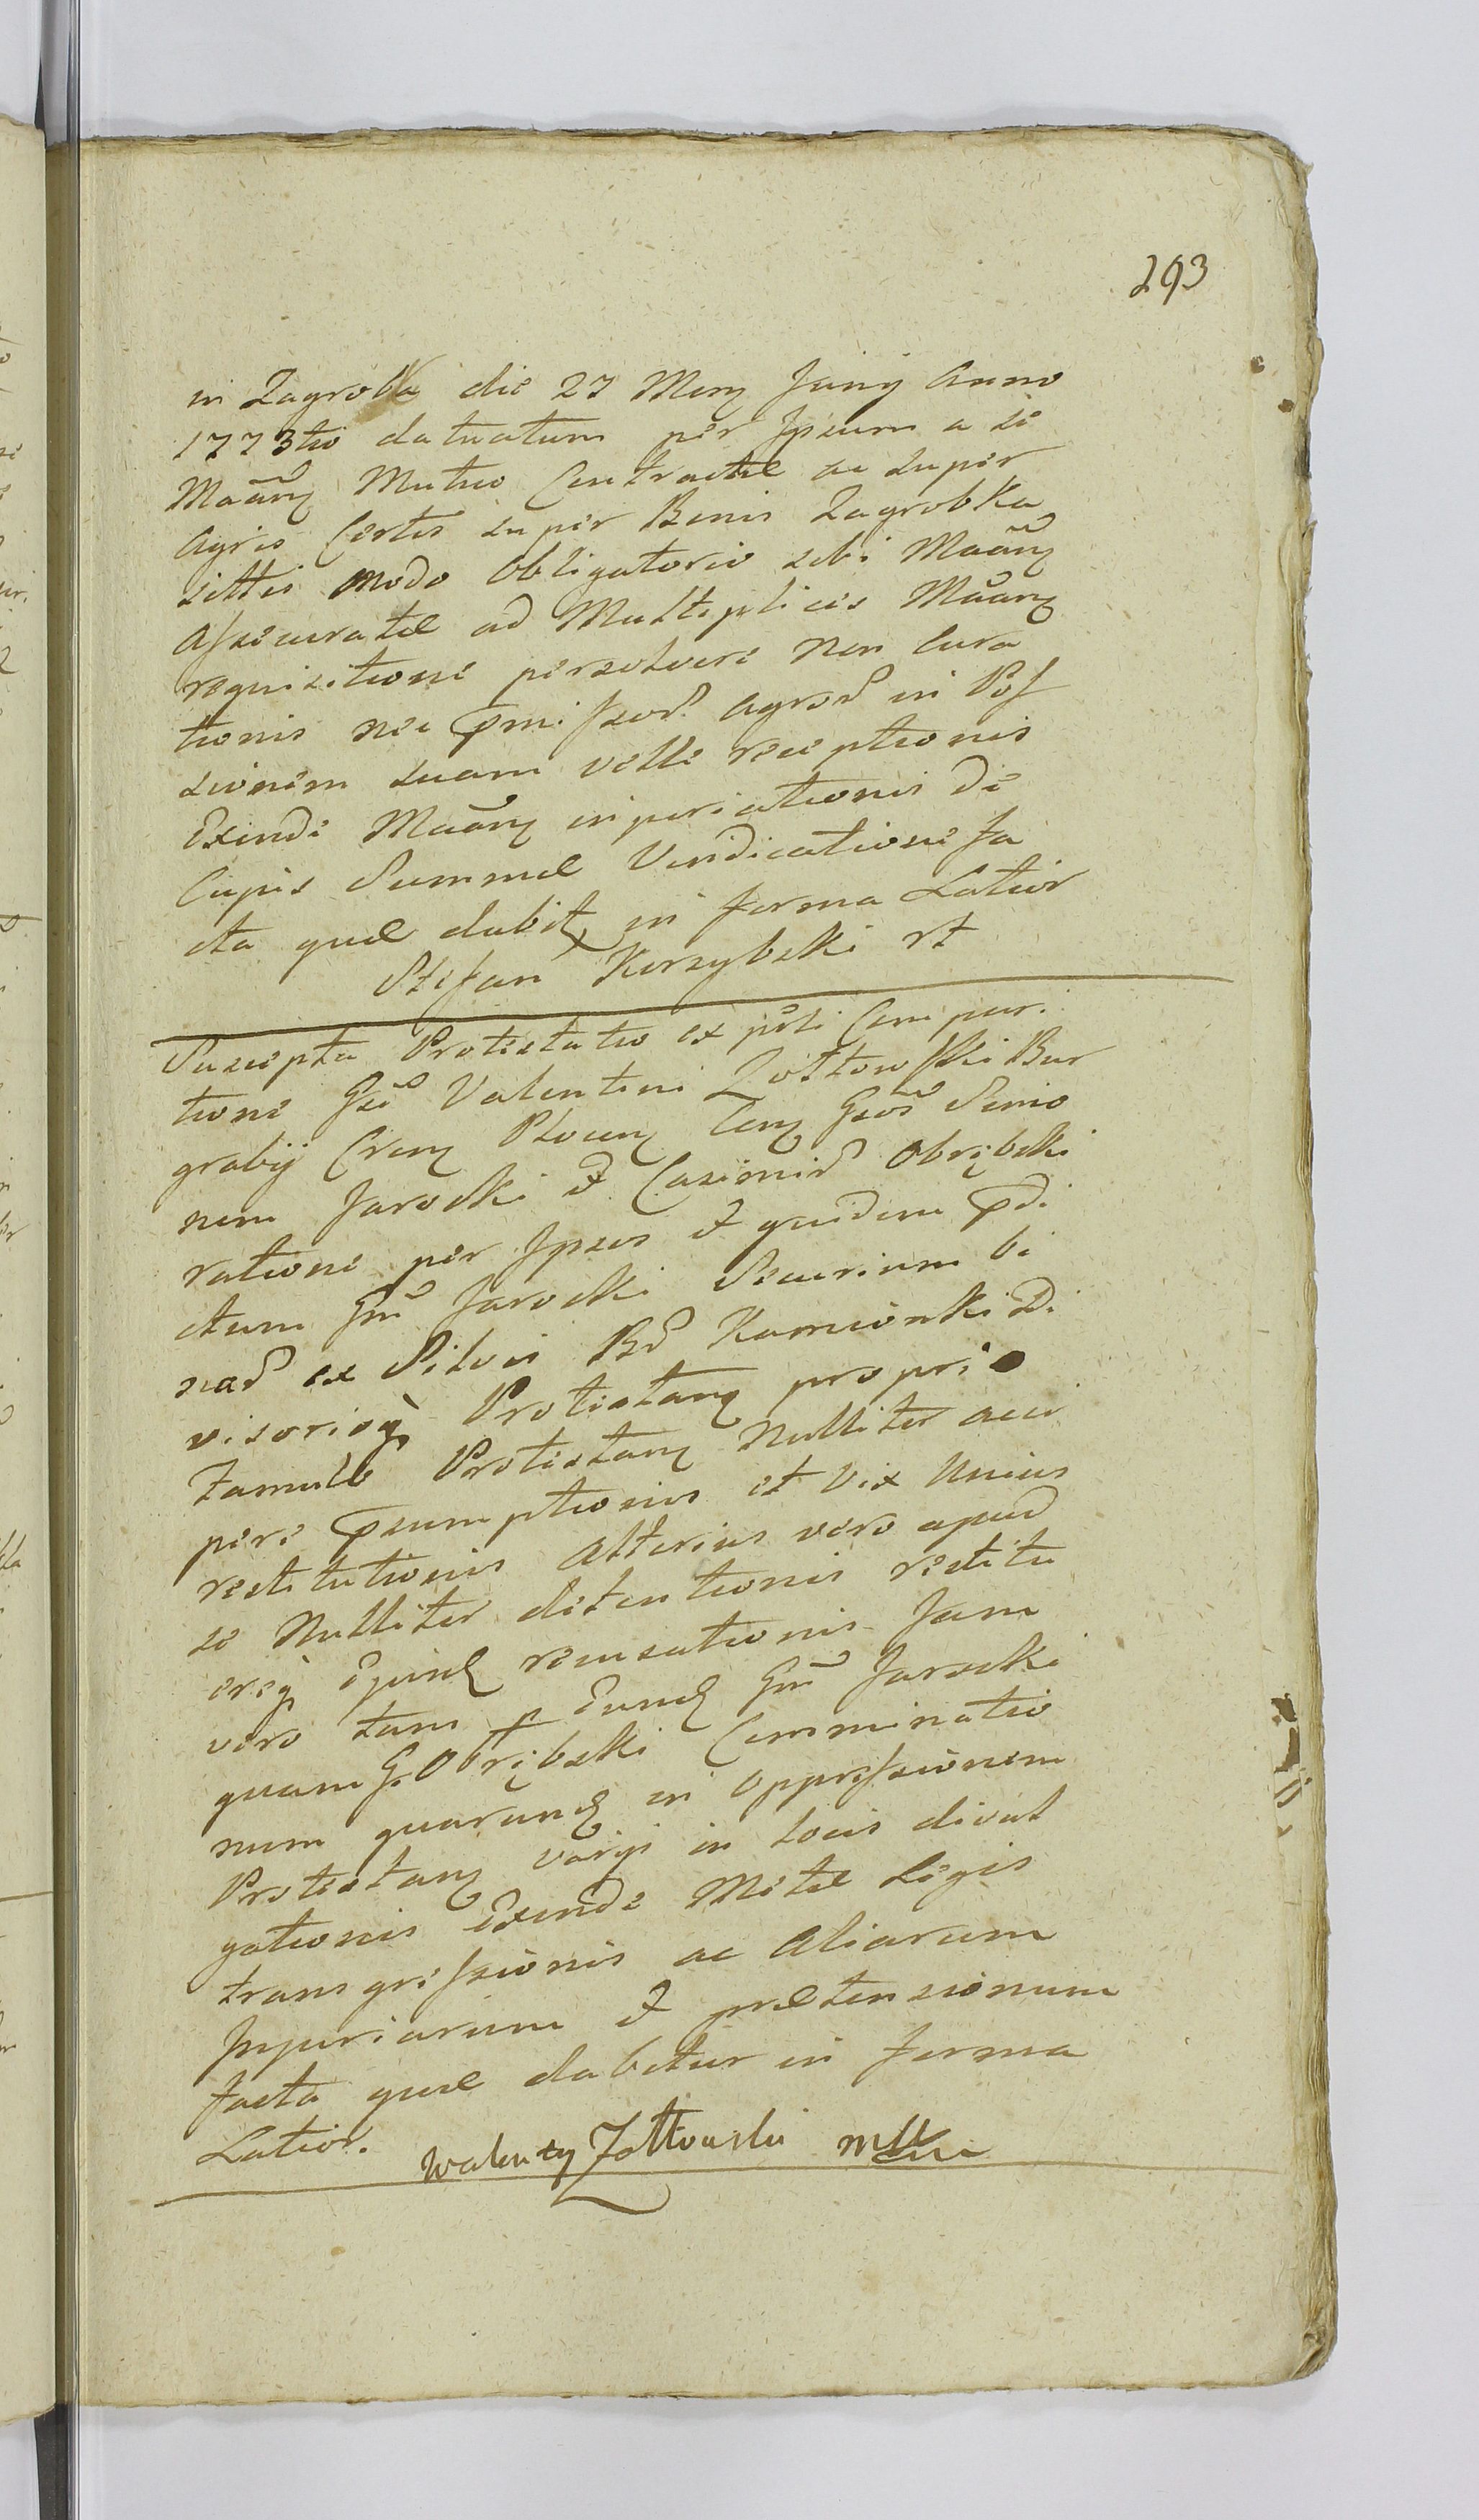 293
in Zagrobka die 27 Mens Junÿ Anno
1773tio datuatum per Ipsum a se
Maãn Mutuo Contractæ ac super
Agris Certis super Bonis Zagrobka
sittis modo Obligatorio sibi Maãn
Assecuratæ ad Multiplices Maãn
requisitione persolvere non Cura
tionis nec pmissor. Agror in Pos
sionem suam velle receptionis
Exinde Maãn inpuriationis de
Cupis Summæ Vendicatione fa
cta quæ dabit in forma Latior
Stefan Korzybski rt
Suscepta Protestatio ex psti Compari
tione Gsi Valentini Zołtowski Bur
grabÿ Cren Plocen Con Gsos Simo
nem Jarocki et Casimir Obrębski
ratione per Ipsos et quidem pdi
ctum Gm Jarocki Securium bi
nar ex Silvis Br Kamionki Di
visorioq Protestan proprio
Famulo Protestan Nulliter acci
pere psumptionis et Vix Unius
restitutionis Alterius vero apud
se Nulliter detentionis restitu
ereq Ejusd recusationis Jam
vero tam p Eund Gm Jarocki
quam G. Obrębski Comminatio
num quarund in Oppressionem
Protestan varÿs in locis divul
gationis Exinde Metæ Legis
transgressionis ac Aliarum
Injuriarum et prætensionum
facta quæ dabitur in forma
Latior.
Walenty Zołtowski mp